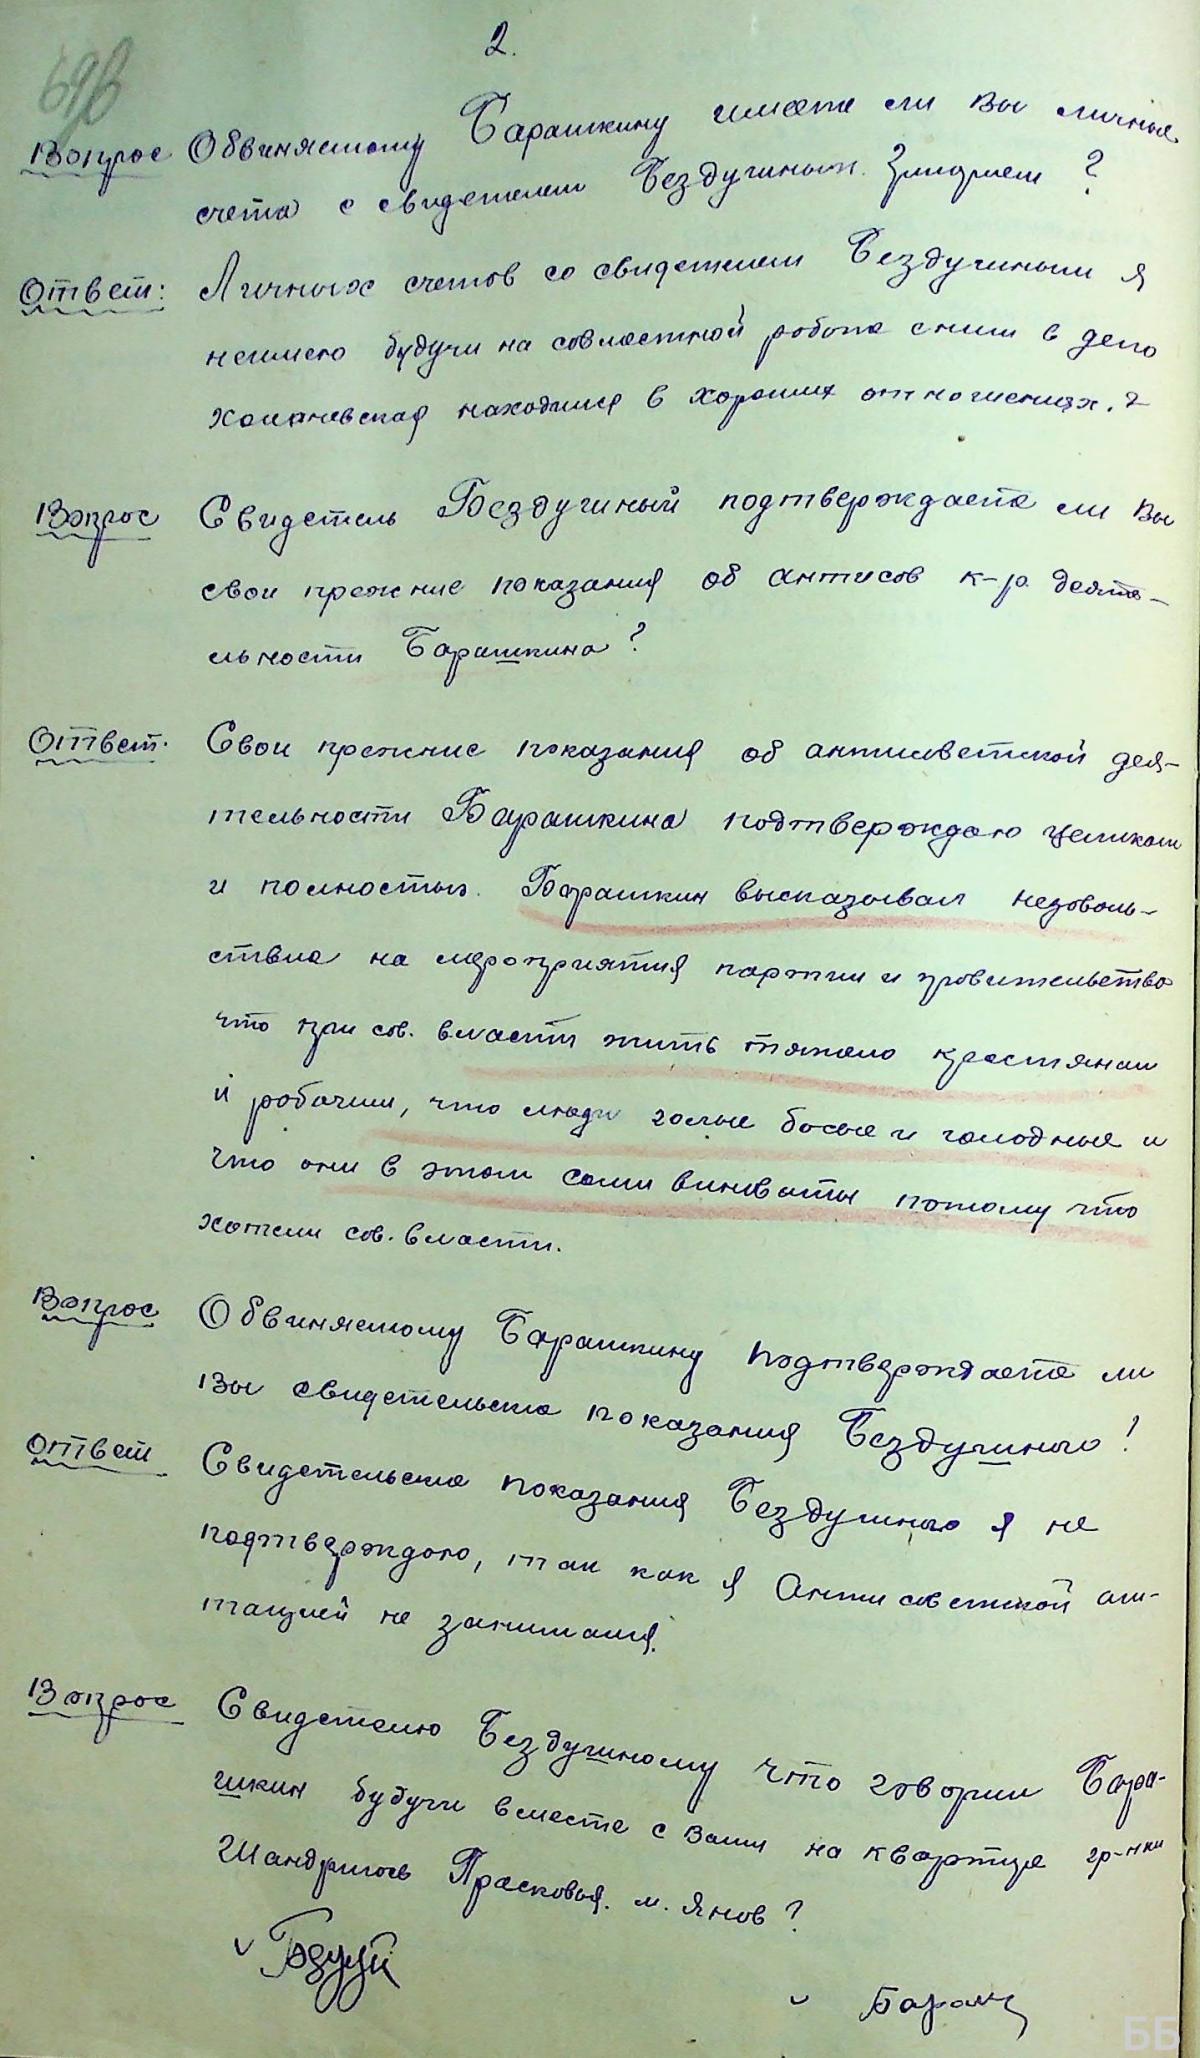 2.
Вопрос Обвиняемому Барашкину имеете ли Вы личные
счета с свидетелем Бездушным
?
Ответ: Личных счетов со свидетелем Бездушным я
неимею будучи на совместной работе сним в депо
находился в хороших отношениях.
Вопрос Свидетель Бездушный подтверждаете ли Вы
свои прежние показания об антисов к-р. деяте-
льности Барашкина?
Ответ. Свои прежние показания об антисоветской дея-
тельности Барашкина подтверждаю целиком
и полностью. Барашкин высказывал недоволь-
ствие на мероприятия партии и правительства
что при сов. власти жить тяжело крестянам
и рабочим, что люди голые босые и голодные и
что они в этом сами виноваты потому что
хотели сов. власти.
Вопрос Обвиняемому Барашкину подтверждаете ли
Вы свидетельские показания Бездушного!
Ответ Свидетельские показания Бездушного я не
подтверждаю, так как я Антисоветской аги-
тацией не занимался.
Вопрос Свидетелю Бездушному что говорил Бара-
шкин будучи вместе с Вами на квартире гр-нки
Прасковья. м. Янов?
ББ